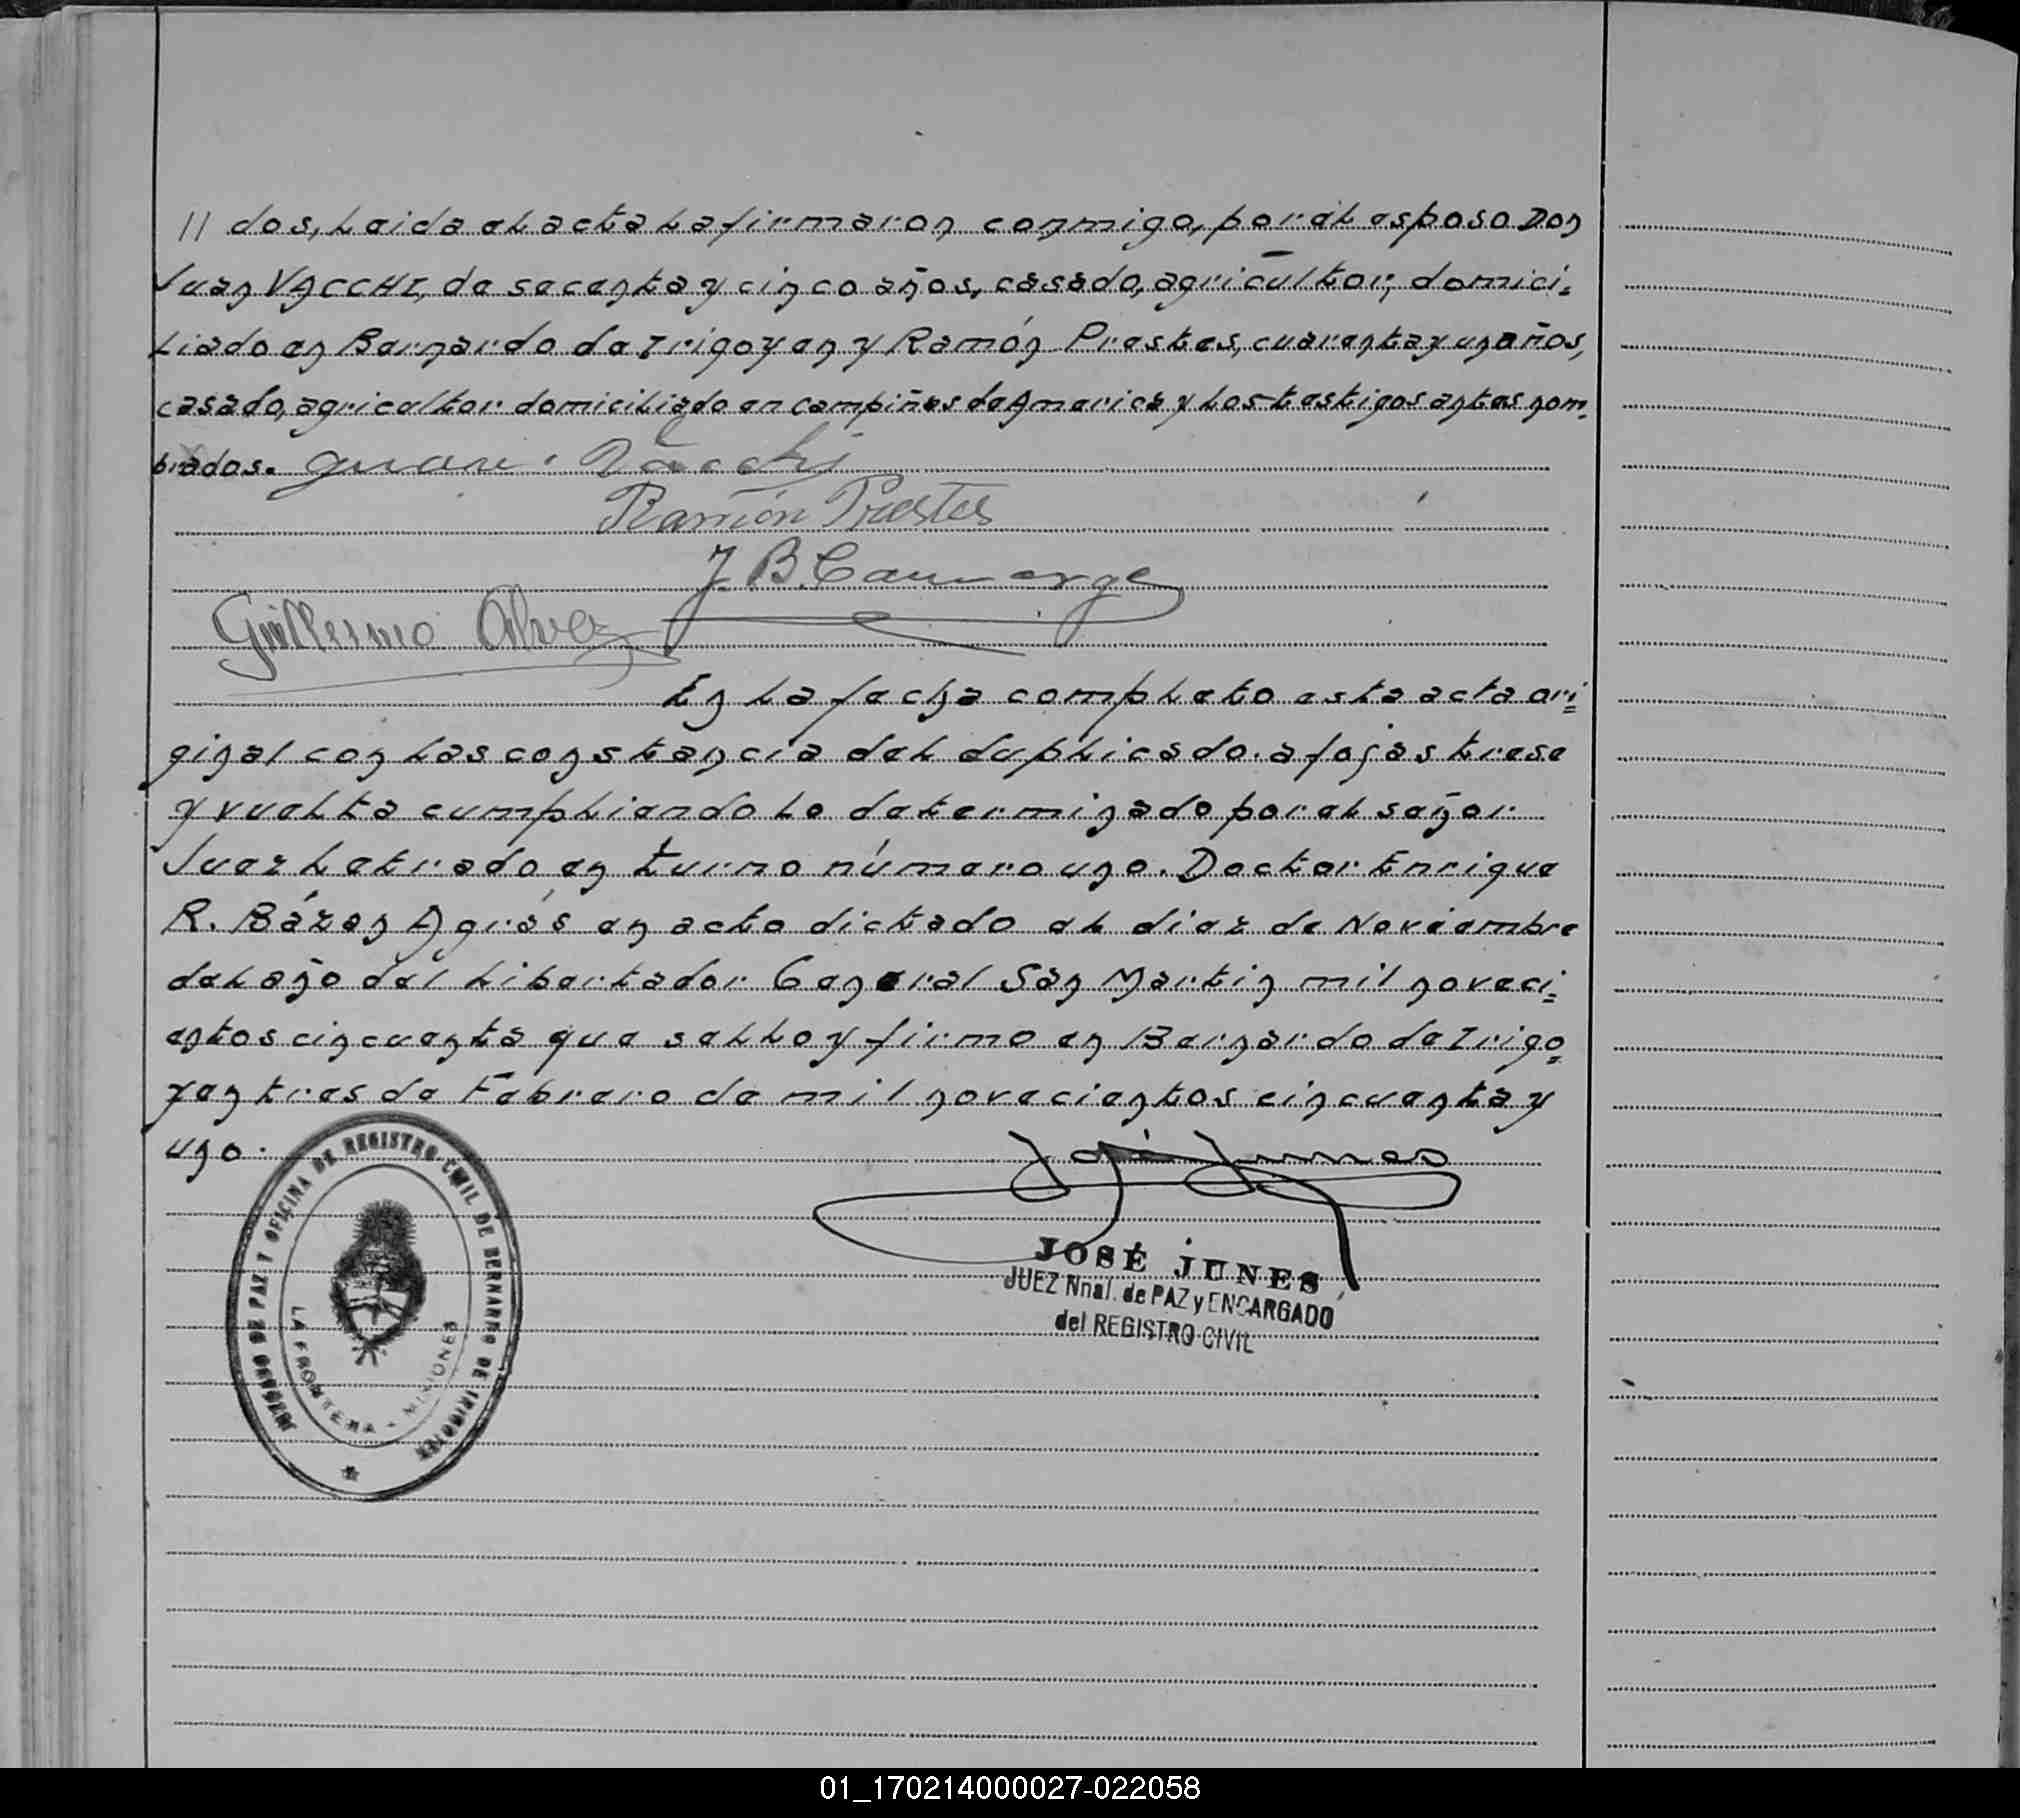 // dos, Leida el acta La firmaron conmigo, por el esposo Don
Juan VACCHI, de secenta y cinco años, casado, agricultor, domici-
Liado en Bernardo de Irigoyen y Ramón Prestes, cuarenta y un años,
casado, agricultor domiciliado en campiñas de America y Los testigos antes nom-
brados. Juan Vacchi
Ramón Prestes
J. B. Camargo
Guillermo Alvez
En La fecha completo esta acta ori=
ginal con Las constancia del duplicado a fojas trese
y vuelta cumpliendo Lo determinado por el señor
Juez Letrado en turno número uno. Doctor Enrique
R. Bázan Agrás en acto dictado el diez de Noviembre
del año del Libertador General San Martin mil noveci=
entos cincuenta que sello y firmo en Bernardo de Irigo=
yen tres de Febrero de mil novecientos cincuenta y
uno.
José Junes
JOSÉ JUNES
JUEZ Nnal. de PAZ y ENCARGADO
del REGISTRO CIVIL
JUZGADO DE PAZ Y OFICINA DE REGISTRO CIVIL DE BERNARDO DE IRIGOYEN
LA FRONTERA - MISIONES
01_170214000027-022058